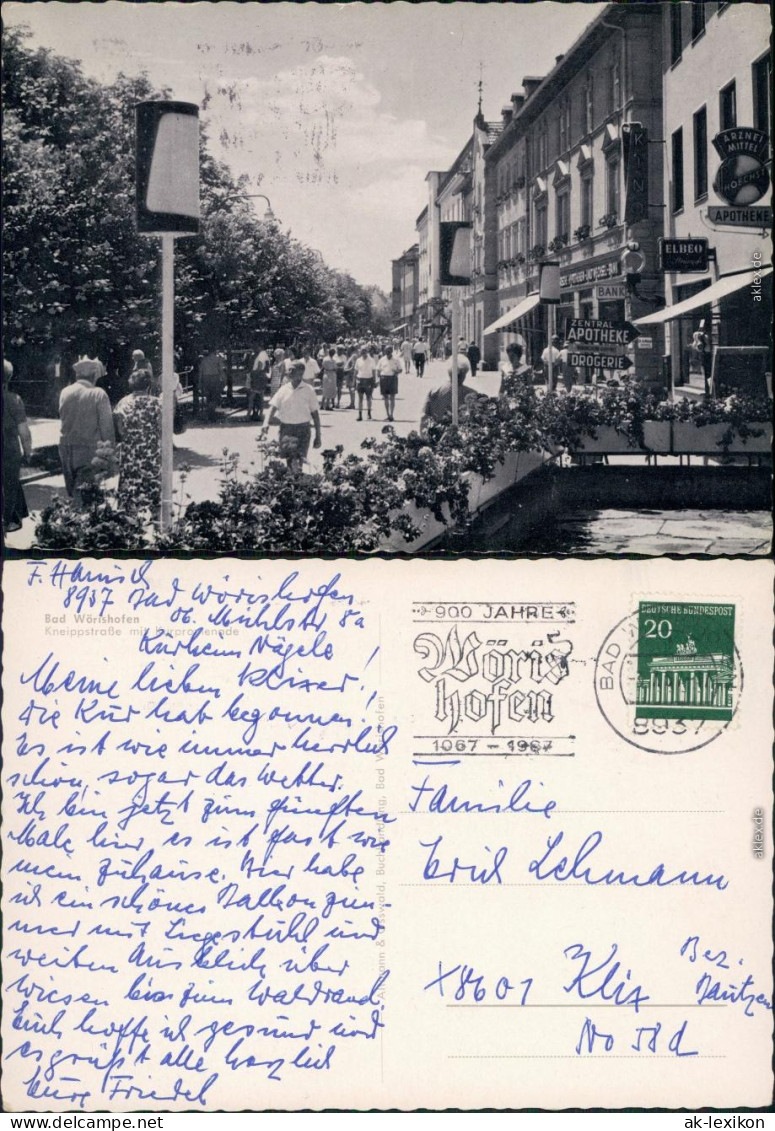 ÄRZNEI
MITTEL
HOECHST
APOTHEKE
KINO
ELBEO
BANK
ZENTRAL
APOTHEKE
DROGERIE
aklex.de
F. Hanisch
8937 Bad Wörishofen
Ob. Mühlstr 8a
Kurheim Nägele!
Bad Wörishofen
Kneippstraße mit Kurpromenade
Meine lieben Klixer!,
die Kur hat begonnen.
Es ist wie immer herrlich
schön, sogar das Wetter.
Ich bin jetzt zum fünften
Male hier, es ist fast wie
mein Zuhause. Hier habe
ich ein schönes Balkonzim-
mer mit Liegestuhl und
weiten Ausblick über
Wiesen bis zum Waldrand.
Euch hoffe ich gesund und
es grüßt alle herzlich
Eure Friedel
900 JAHRE
Wöris
hofen
1067 - 1967
BAD
8937
DEUTSCHE BUNDESPOST
20
Familie
Erich Lehmann
X8601 Klix
Bez.
Bautzen
No 58d
aklex.de
ak-lexikon
ak-lexikon.com